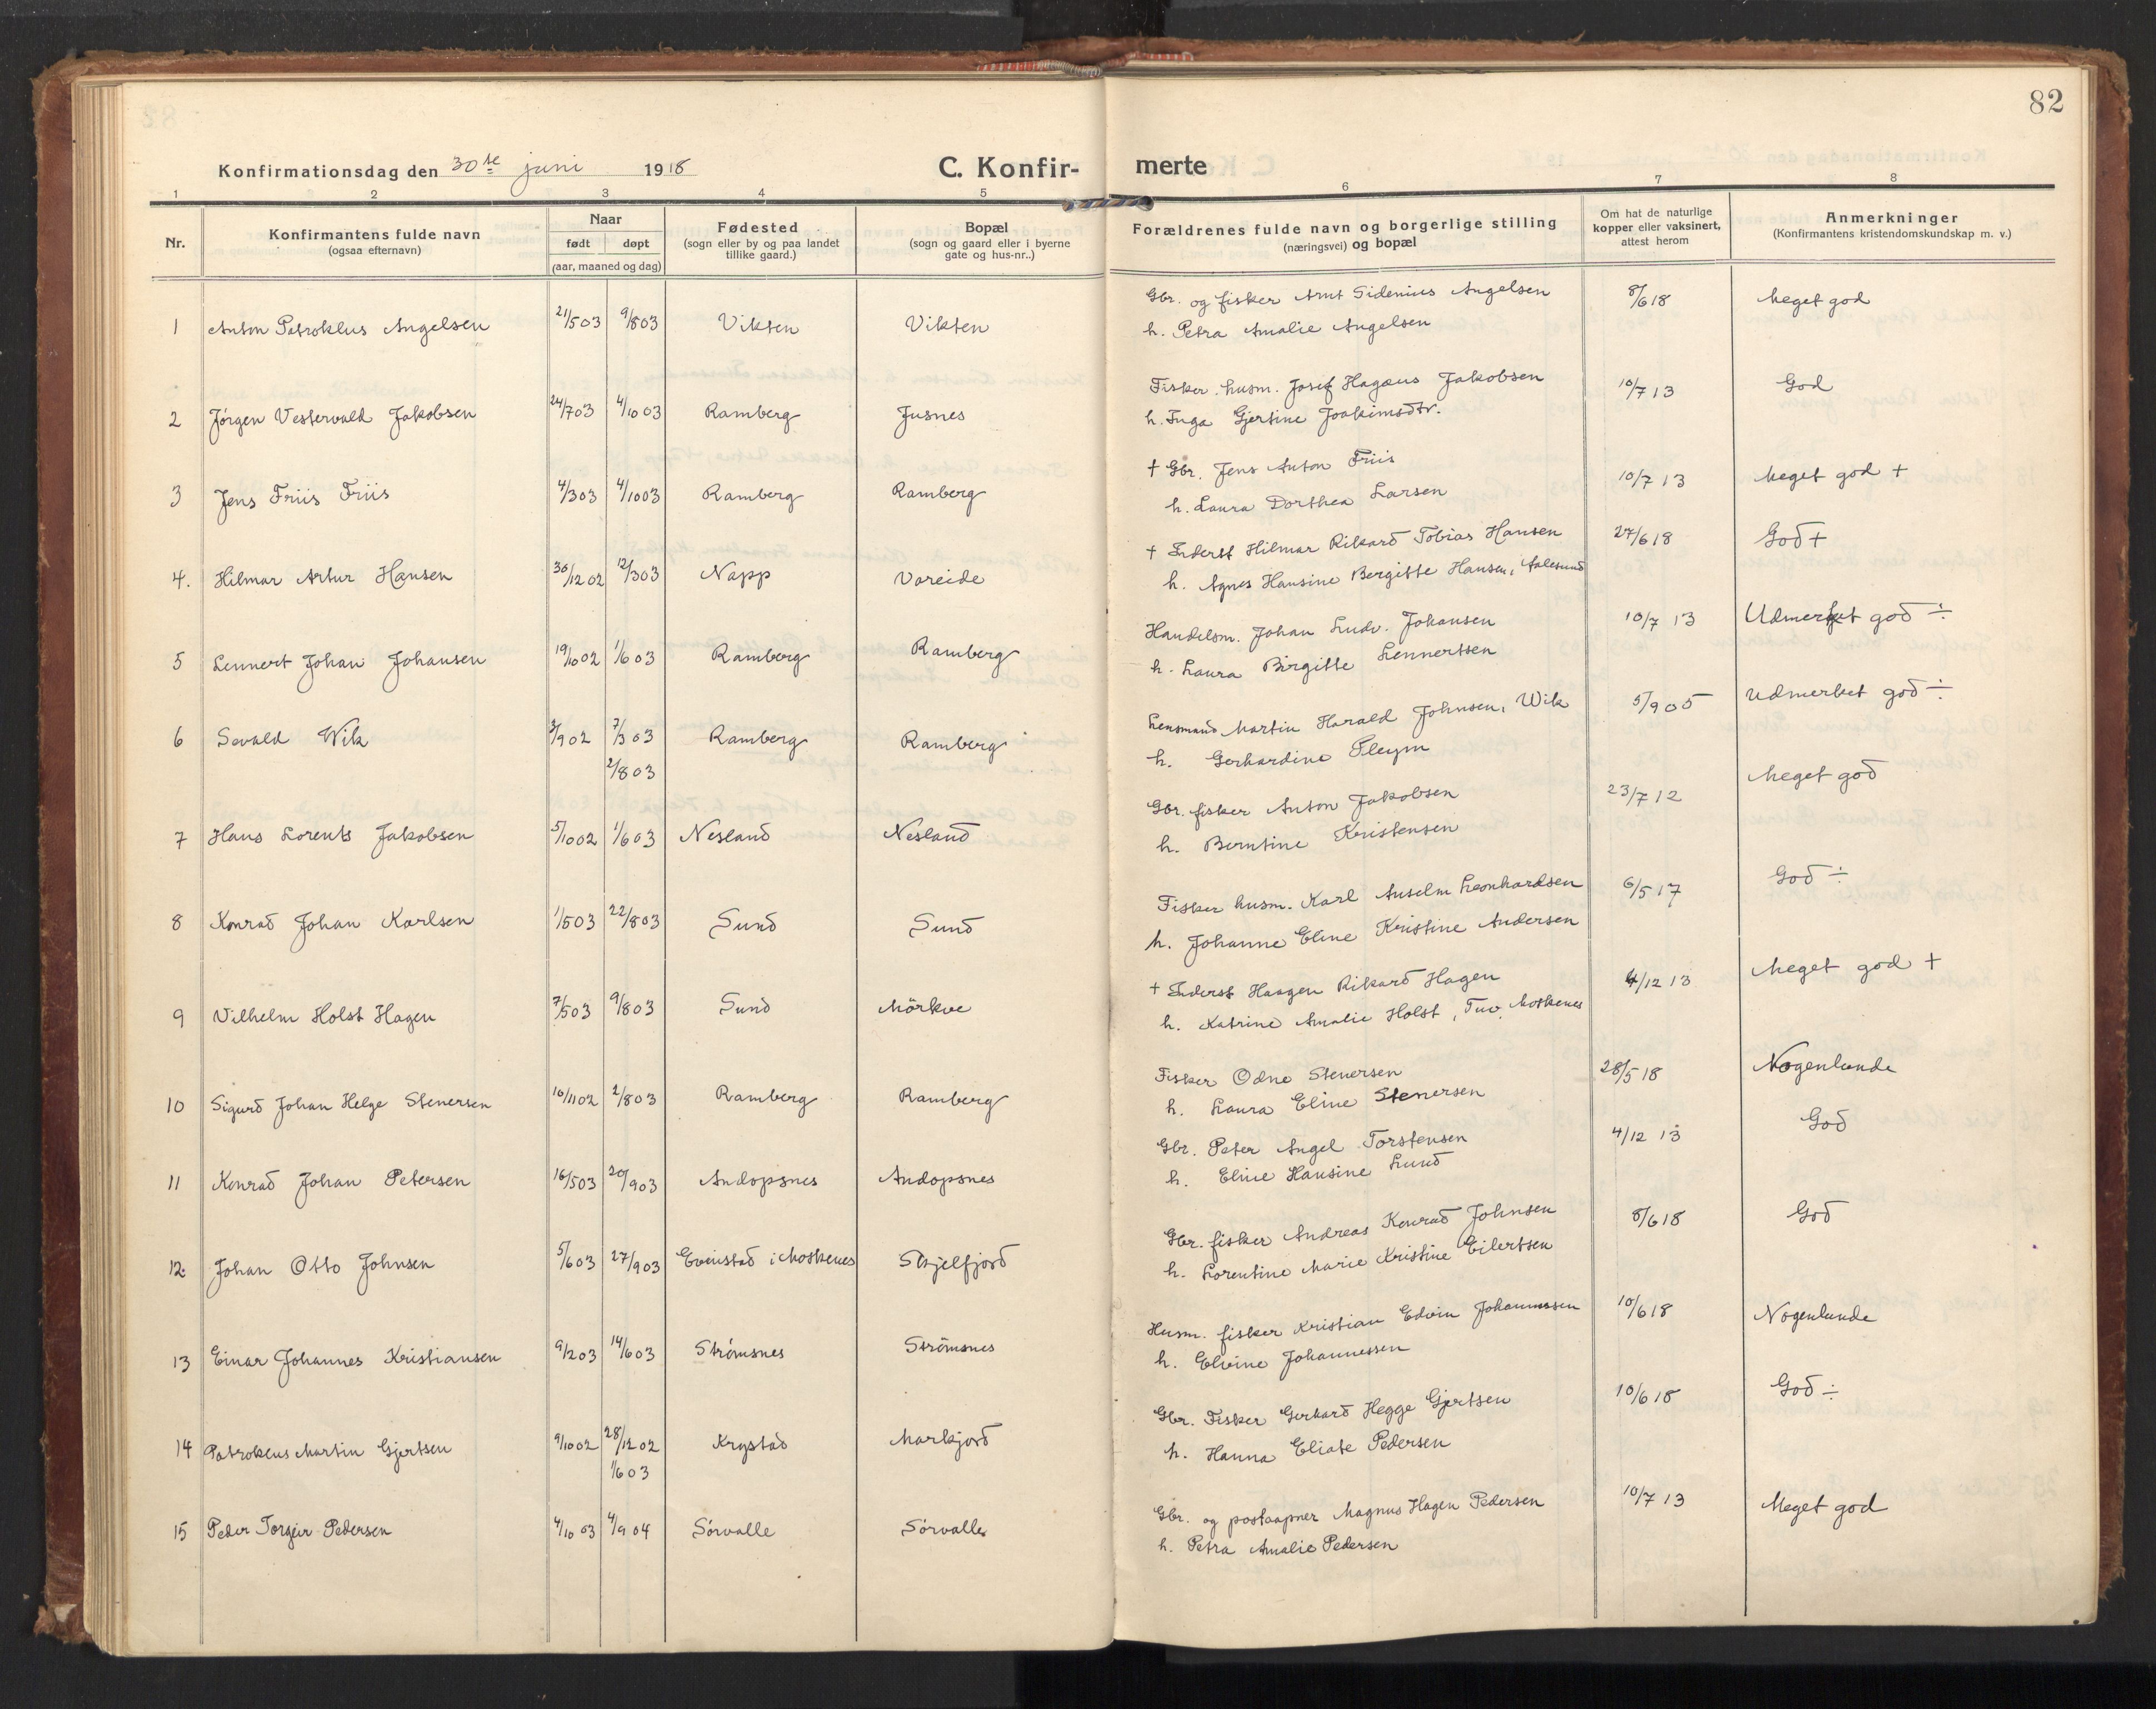 82
Konfirmationsdag den 30te juni 1918
C. Konfir-
merte
1 2 3 4 5 6 7 8
Nr.
Konfirmantens fulde navn
(ogsaa efternavn)
Naar
født døpt
(aar, maaned og dag)
Fødested
(sogn eller by og paa landet
tillike gaard.)
Bopæl
(sogn og gaard eller i byerne
gate og hus-nr..)
Forældrenes fulde navn og borgerlige stilling
(næringsvei) og bopæl
Om hat de naturlige
kopper eller vaksinert,
attest herom
Anmerkninger
(Konfirmantens kristendomskundskap m. v.)
1 Anton Petroklus Angelsen 21/5 03 9/8 03 Vikten Vikten
Gbr. og fisker Arnt Sidenius Angelsen 8/6 18 Meget god
h. Petra Amalie Angelsen
2 Jørgen Vestervald Jakobsen 24/7 03 4/10 03 Ramberg Jusnes
Fisker. husm. Josef Hagæus Jakobsen 10/7 13 God
h. Inga Gjertine Joakimsdtr.
3 Jens Friis Friis 4/3 03 4/10 03 Ramberg Ramberg
† Gbr. Jens Anton Friis 10/7 13 Meget god +
h. Laura Dorthea Larsen
4. Hilmar Artur Hansen 30/12 02 12/3 03 Napp Vareide
† Inderst Hilmar Rikard Tobias Hansen 27/6 18 God +
h. Agnes Hansine Bergitte Hansen, Aalesund
5 Lennert Johan Johansen 19/10 02 1/6 03 Ramberg Ramberg
Handelsm. Johan Ludv. Johansen 10/7 13 Udmerket god ÷
h. Laura Birgitte Lennertsen
6 Sevald Wik 3/9 02 7/3 03 Ramberg Ramberg
2/8 03
Lensmand Martin Harald Johnsen, Wik 5/9 05 Udmerket god ÷
h. Gerhardine Pleym
7 Hans Lorents Jakobsen 5/10 02 1/6 03 Nesland Nesland
Gbr. fisker Anton Jakobsen 23/7 12 Meget god
h. Berntine Kristensen
8 Konrad Johan Karlsen 1/5 03 22/8 03 Sund Sund
Fisker husm. Karl Anselm Leonhardsen 6/5 17 God ÷
h. Johanne Eline Kristine Andersen
9 Vilhelm Holst Hagen 7/5 03 9/8 03 Sund Mörkve
† Inderst Haagen Rikard Hagen 4/12 13 Meget god +
h. Katrine Amalie Holst, Tuv, Moskenes
10 Sigurd Johan Helge Stenersen 10/11 02 2/8 03 Ramberg Ramberg
Fisker Odne Stenersen 28/5 18 Nogenlunde
h. Laura Eline Stenersen
11 Konrad Johan Petersen 16/5 03 20/9 03 Andopsnes Andopsnes
Gbr. Peter Angel Torstensen 4/12 13 God
h. Eline Hansine Lund
12. Johan Otto Johnsen 5/6 03 27/9 03 Evenstad i Moskenes Skjelfjord
Gbr. fisker Andreas Konrad Johnsen 8/6 18 God
h. Lorentine Marie Kristine Eilertsen
13 Einar Johannes Kristiansen 9/2 03 14/6 03 Strömsnes Strömsnes
Husm. fisker Kristian Edvin Johannessen 10/6 18 Nogenlunde
h. Elvine Johannessen
14 Patroklus Martin Gjertsen 9/10 02 28/12 02 Krystad Markjord
1/6 03
Gbr. Fisker Gerhard Hegge Gjertsen 10/6 18 God ÷
h. Hanna Eliate Pedersen
15 Peder Torgeir Pedersen 4/10 03 4/9 04 Sörvalle Sörvalle
Gbr. og postaapner Magnus Hagen Pedersen 10/7 13 Meget god
h. Petra Amalie Pedersen